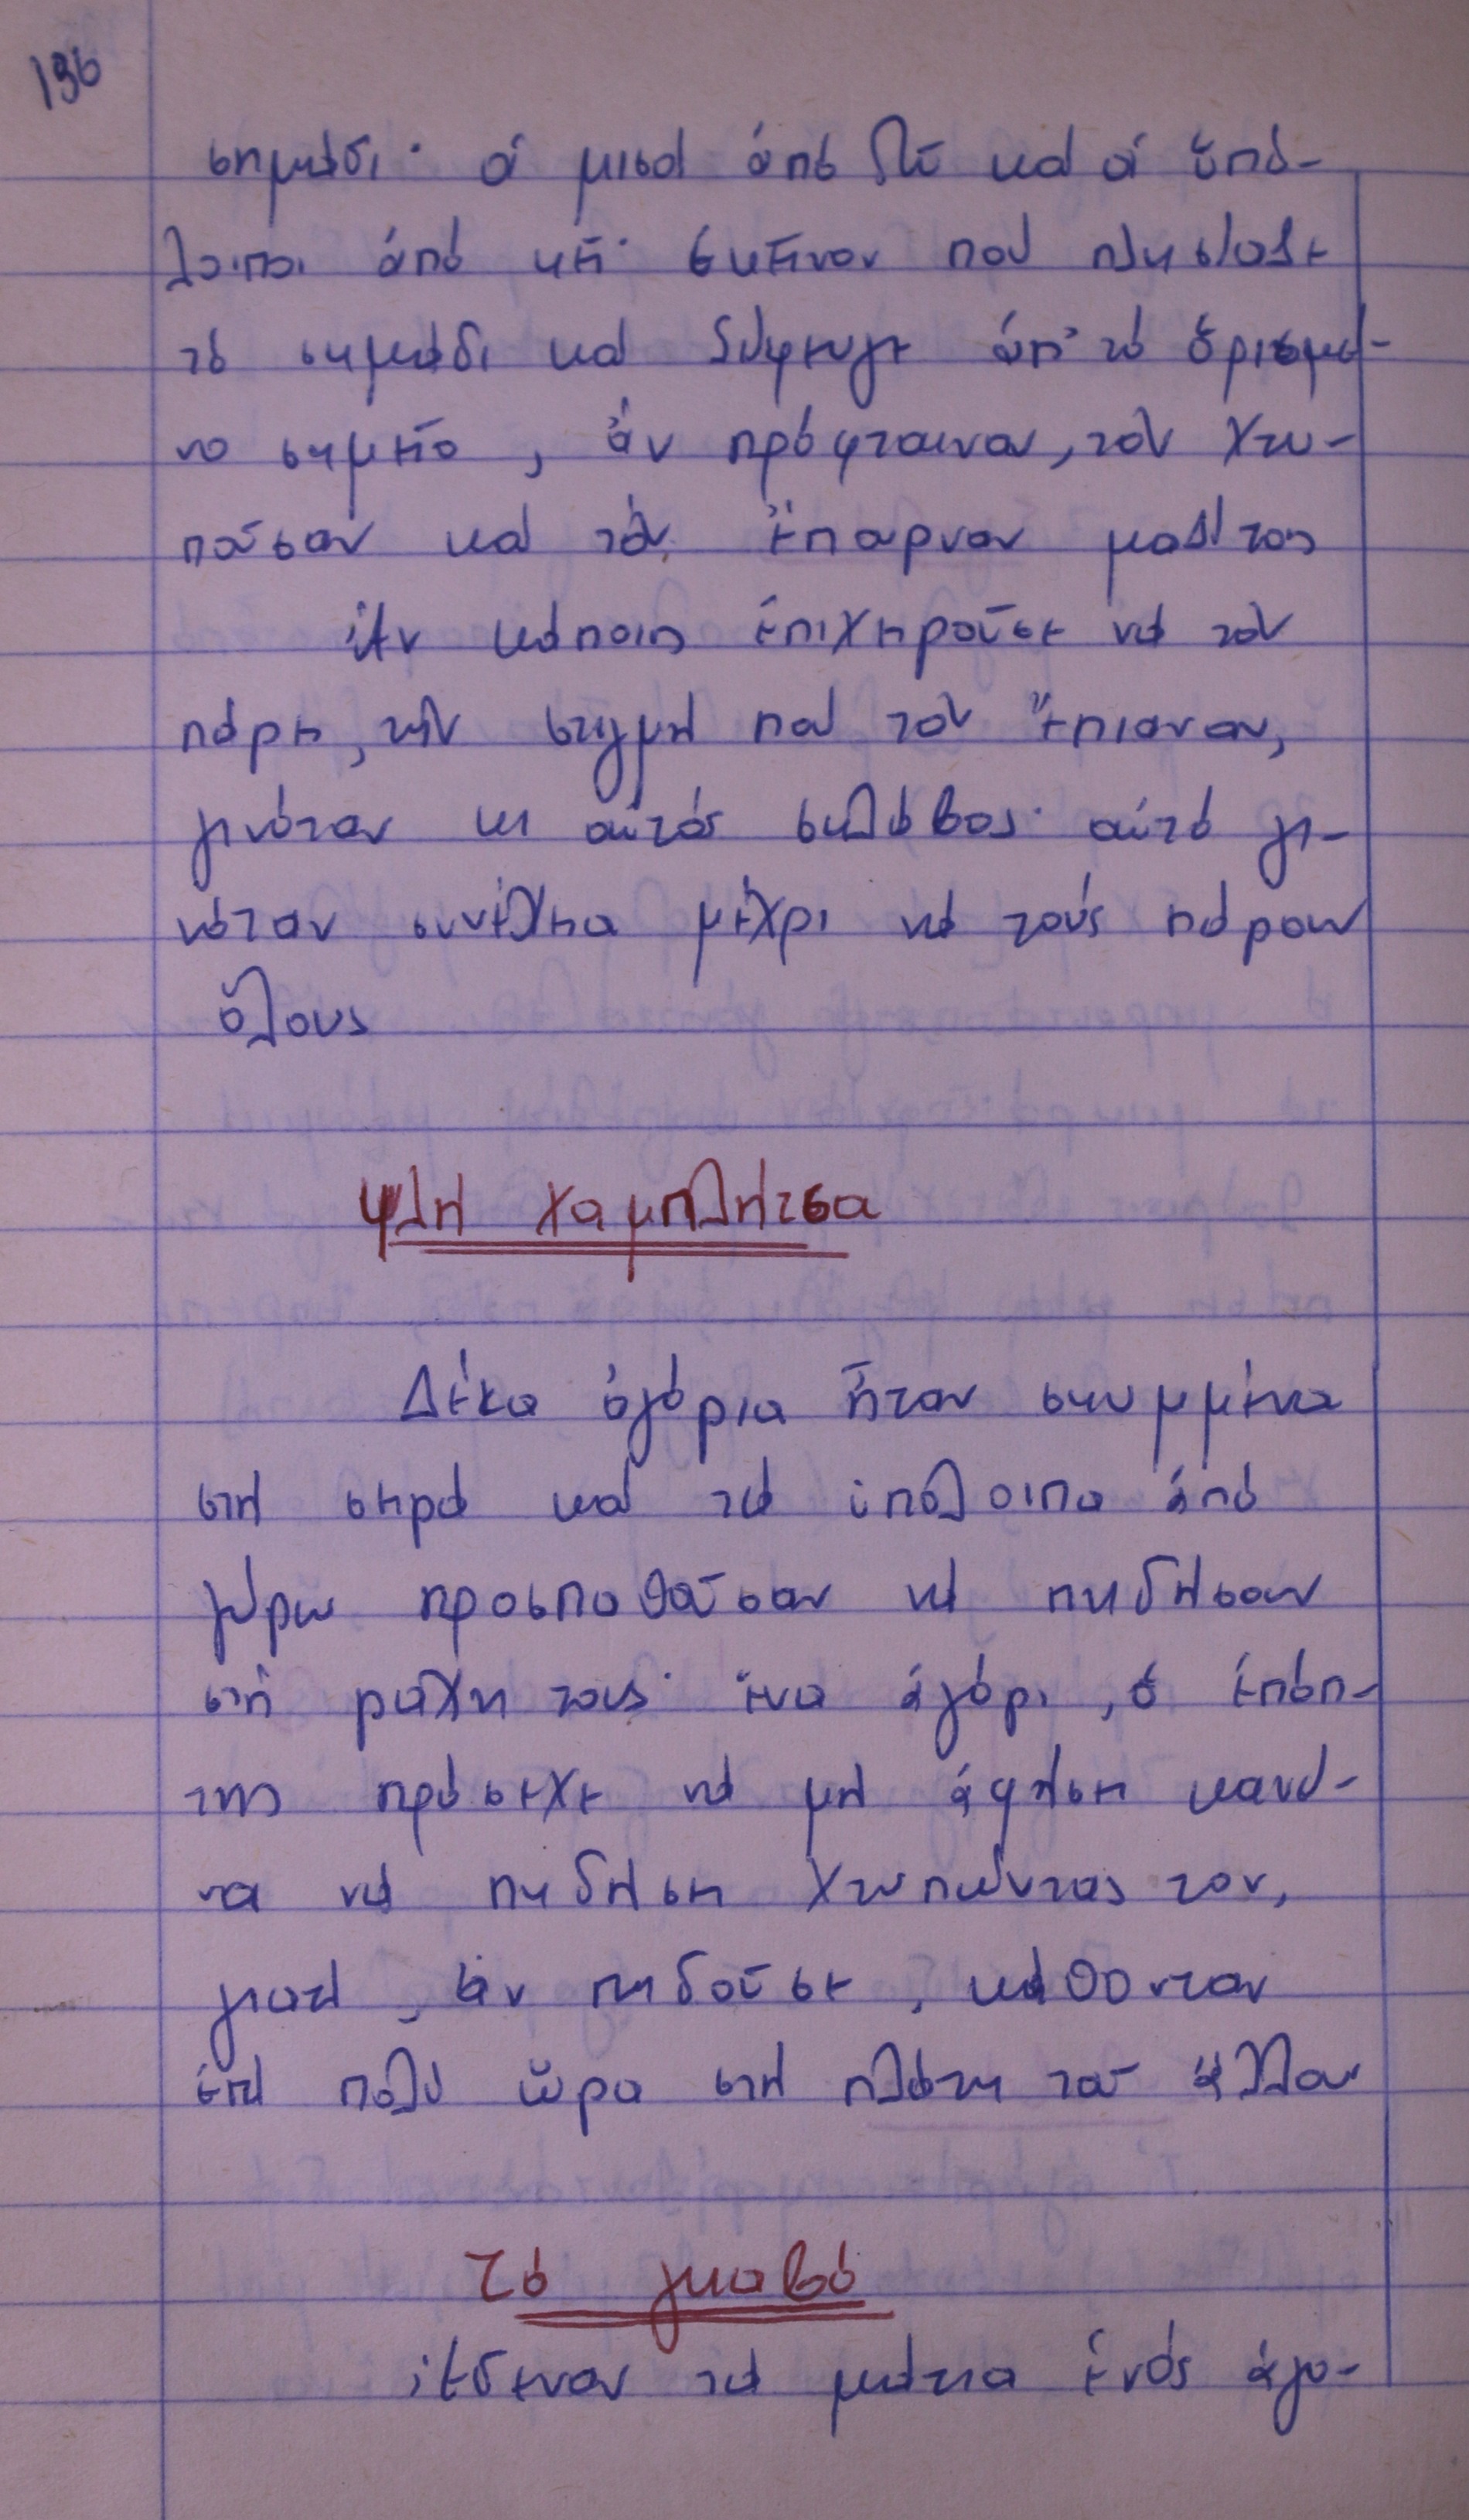 196
σημάδι· οἱ μισοί ἀπό δῶ καί οἱ ὑπό-
λοιποι ἀπό κεῖ· ἐκεῖνον πού πλησίαζε
τό σημάδι καί ξέφευγε ἀπ' τό ὁρισμέ-
νο σημεῖο, ἄν πρόφταιναν, τόν χτυ-
ποῦσαν καί τόν ἔπαιρναν μαζί τους
Ἄν κάποιος ἐπιχειροῦσε νά τόν
πάρει, τήν στιγμή πού τόν ἔπιαναν,
γινόταν κι αὐτός σκλάβος· αὐτό γι-
νόταν συνέχεια μέχρι νά τούς πάρουν
ὅλους
ψλή χαμπλήτσα
Δέκα ἀγόρια ἦταν σκυμμένα
στή σειρά καί τά ὑπόλοιπα ἀπό
γύρω προσπαθοῦσαν νά πηδήσουν
στή ράχη τους· ἕνα ἀγόρι, ὁ ἐπόπ-
της πρόσεχε νά μή ἀφήσει κανέ-
να νά πηδήσει χτυπώντας τον,
γιατί, ἄν πηδοῦσε, κάθονταν
ἐπί πολύ ὥρα στή πλάτη τοῦ ἄλλου
Τό γκαβό
Ἔδεναν τά μάτια ἑνός ἀγο-